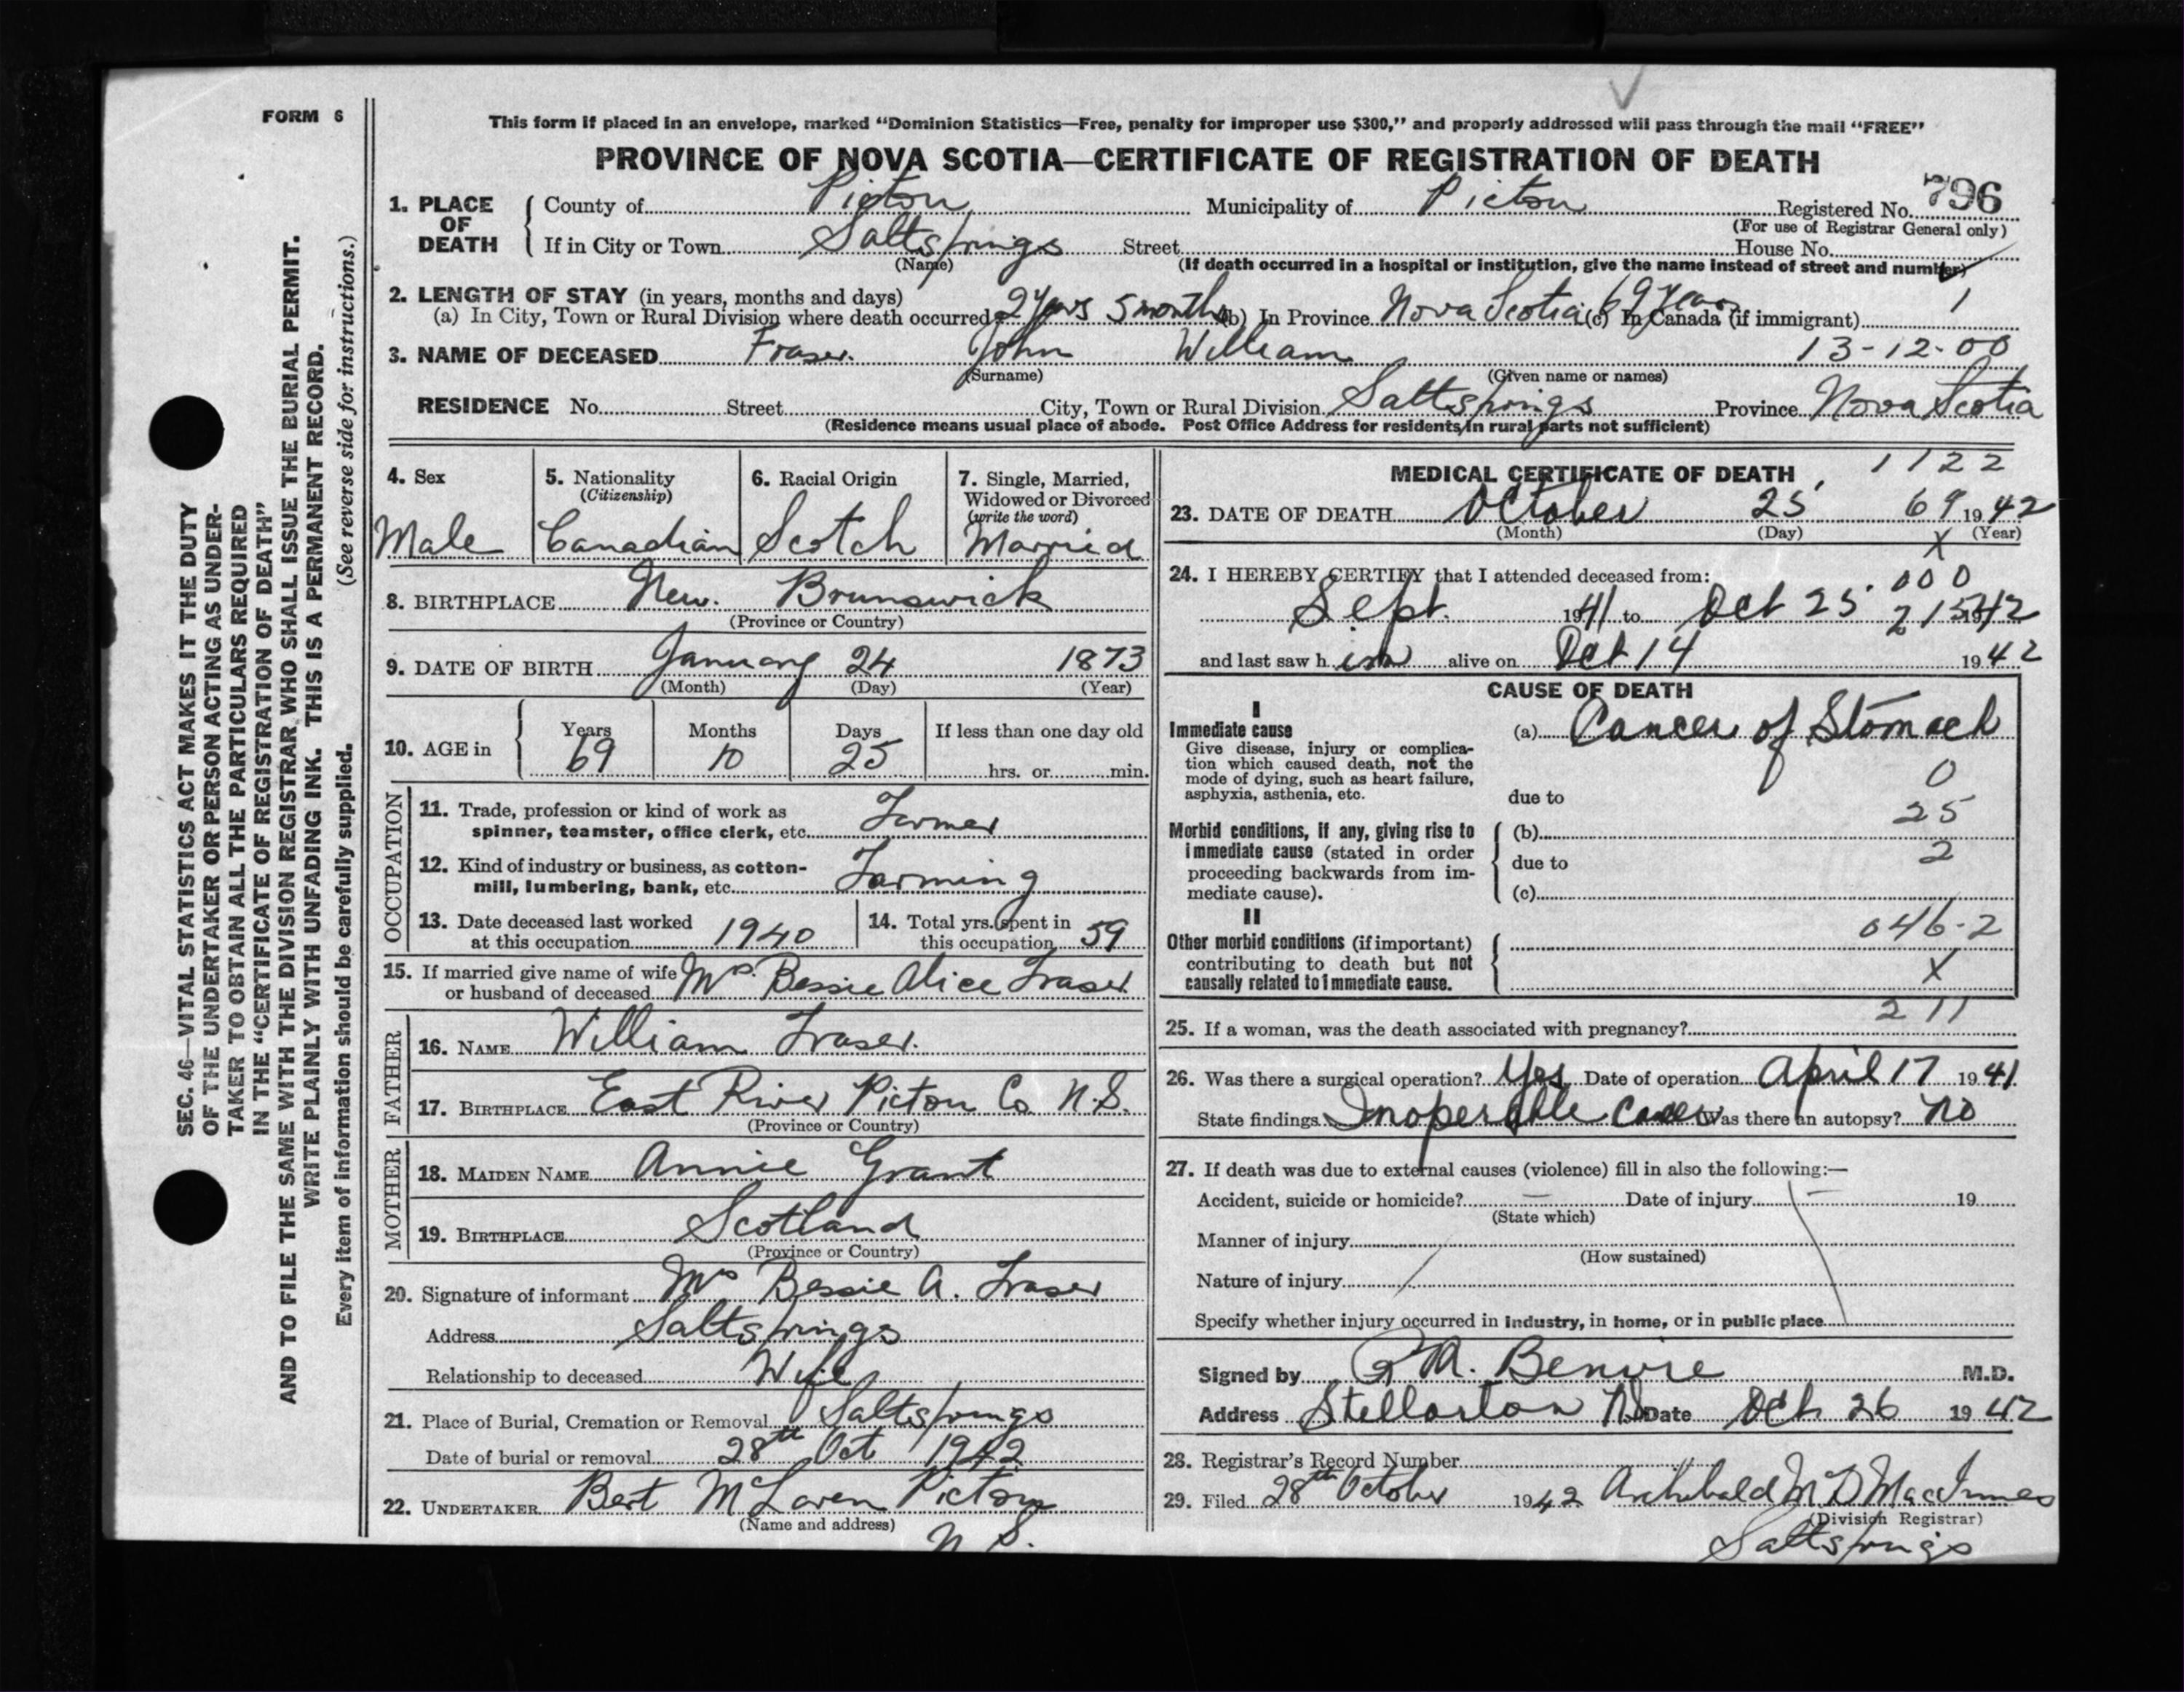 FORM 6
This form if placed in an envelope, marked “Dominion Statistics—Free, penalty for improper use $300,” and properly addressed will pass through the mail “FREE”
PROVINCE OF NOVA SCOTIA—CERTIFICATE OF REGISTRATION OF DEATH
796
1. PLACE OF DEATH County of Pictou Municipality of Pictou Registered No.
(For use of Registrar General only)
If in City or Town Saltsprings Street House No.
(Name) (If death occurred in a hospital or institution, give the name instead of street and number)
2. LENGTH OF STAY (in years, months and days)
(a) In City, Town or Rural Division where death occurred 2 years 5 months (b) In Province Nova Scotia 69 Years (c) In Canada (if immigrant) 1
3. NAME OF DECEASED Fraser. John William 13-12-00
(Surname) (Given name or names)
RESIDENCE No. Street City, Town or Rural Division Saltsprings Province Nova Scotia
(Residence means usual place of abode. Post Office Address for residents in rural parts not sufficient)
4. Sex Male
5. Nationality (Citizenship) Canadian
6. Racial Origin Scotch
7. Single, Married, Widowed or Divorced (write the word) Married
8. BIRTHPLACE New. Brunswick
(Province or Country)
9. DATE OF BIRTH January 24 1873
(Month) (Day) (Year)
10. AGE in Years 69 Months 10 Days 25 If less than one day old hrs. or min.
OCCUPATION
11. Trade, profession or kind of work as
spinner, teamster, office clerk, etc. Farmer
12. Kind of industry or business, as cotton-
mill, lumbering, bank, etc. Farming
13. Date deceased last worked at this occupation 1940
14. Total yrs. spent in this occupation 59
15. If married give name of wife or husband of deceased Mrs. Bessie Alice Fraser
FATHER
16. NAME William Fraser.
17. BIRTHPLACE East River Pictou Co N.S.
(Province or Country)
MOTHER
18. MAIDEN NAME Annie Grant
19. BIRTHPLACE Scotland
(Province or Country)
20. Signature of informant Mrs Bessie A. Fraser
Address Saltsprings
Relationship to deceased Wife
21. Place of Burial, Cremation or Removal Saltsprings
Date of burial or removal 28th Oct 1942
22. UNDERTAKER Bert McLaren Pictou
(Name and address) N S.
MEDICAL CERTIFICATE OF DEATH 1122
23. DATE OF DEATH October 25 69 1942
(Month) (Day) X (Year)
24. I HEREBY CERTIFY that I attended deceased from: 000
Sept. 1941 to Oct 25 215 1942
and last saw him alive on Oct 14 1942
CAUSE OF DEATH
I
Immediate cause (a) Cancer of Stomach
Give disease, injury or complica-
tion which caused death, not the
mode of dying, such as heart failure,
asphyxia, asthenia, etc.
0
due to
25
Morbid conditions, if any, giving rise to
immediate cause (stated in order
proceeding backwards from im-
mediate cause).
(b)
due to 2
(c)
II
Other morbid conditions (if important)
contributing to death but not
causally related to immediate cause.
046-2
X
211
25. If a woman, was the death associated with pregnancy?
26. Was there a surgical operation? Yes Date of operation April 17 1941
State findings Inoperable Cancer Was there an autopsy? No
27. If death was due to external causes (violence) fill in also the following:—
Accident, suicide or homicide? — Date of injury — 19
(State which)
Manner of injury
(How sustained)
Nature of injury
Specify whether injury occurred in industry, in home, or in public place
Signed by M.D.
Address Stellarton NS Date Oct 26 1942
28. Registrar's Record Number
29. Filed 28th October 1942 Archibald McD MacInnes
(Division Registrar)
Saltsprings
SEC. 46—VITAL STATISTICS ACT MAKES IT THE DUTY
OF THE UNDERTAKER OR PERSON ACTING AS UNDER-
TAKER TO OBTAIN ALL THE PARTICULARS REQUIRED
IN THE “CERTIFICATE OF REGISTRATION OF DEATH”
AND TO FILE THE SAME WITH THE DIVISION REGISTRAR WHO SHALL ISSUE THE BURIAL PERMIT.
WRITE PLAINLY WITH UNFADING INK. THIS IS A PERMANENT RECORD.
Every item of information should be carefully supplied. (See reverse side for instructions.)